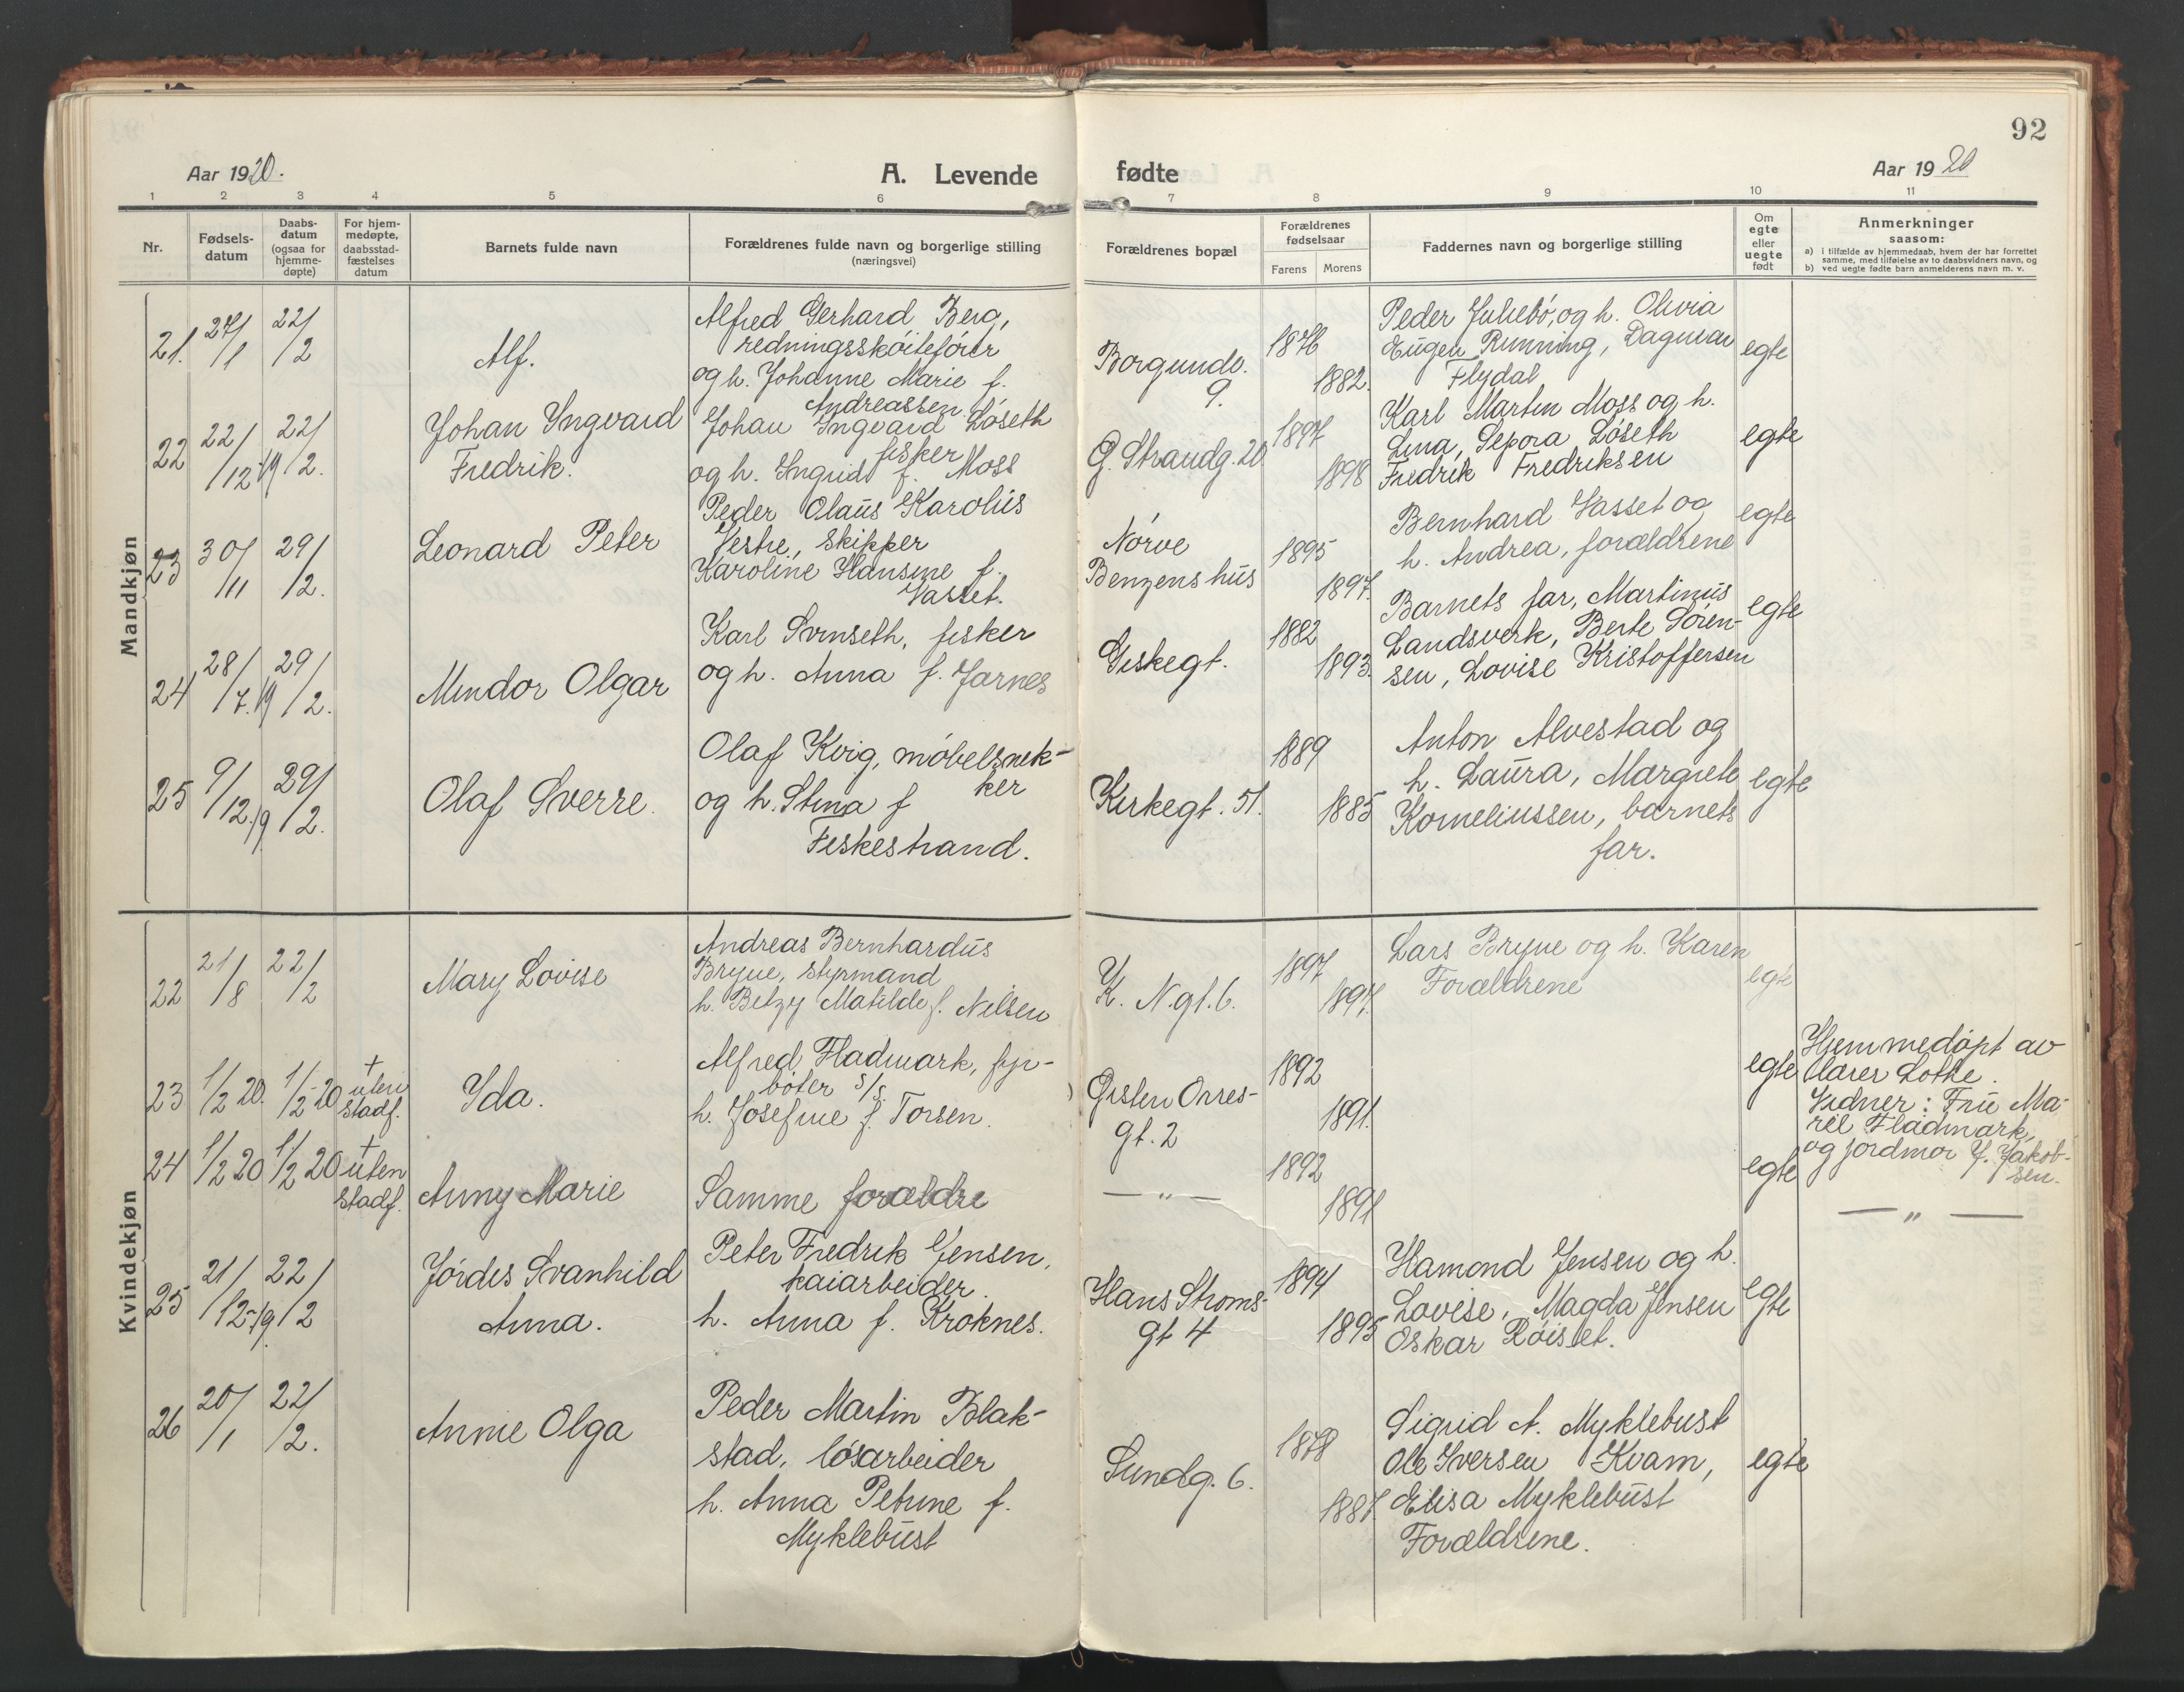 92
Aar 1920.
A. Levende fødte
Aar 1920
1 2 3 4 5 6 7 8 9 10 11
Nr.
Fødsels-
datum
Daabs-
datum
(ogsaa for
hjemme-
døpte)
For hjem-
medøpte,
daabsstad-
fæstelses
datum
Barnets fulde navn
Forældrenes fulde navn og borgerlige stilling
(næringsvei)
Forældrenes bopæl
Forældrenes
fødselsaar
Farens Morens
Faddernes navn og borgerlige stilling
Om
egte
eller
uegte
født
Anmerkninger
saasom:
a) i tilfælde av hjemmedaab, hvem der har forrettet
samme, med tilføielse av to daabsvidners navn, og
b) ved uegte fødte barn anmelderens navn m. v.
Mandkjøn
21. 27/1 22/2
Alf.
Alfred Gerhard Berg,
redningsskøitefører
og h. Johanne Marie f.
Andreassen
Borgundv.
9.
1876
1882.
Peder Juliebø, og h. Olivia
Eugen Running, Dagmar
Flydal
egte
22 22/12-19 22/2.
Johan Yngvard
Fredrik.
Johan Yngvard Løseth
fisker
og h. Ingrid f. Moss
G. Strandg. 20
1897
1898
Karl Martin Moss og h.
Lina, Sepora Løseth
Fredrik Fredriksen
egte
23 30/11 29/2.
Leonard Peter
Peder Olaus Karolus
Vestre, skipper
Karoline Hansine f.
Vasset.
Nørve
Benzenshus
1895
1897.
Bernhard Vasset og
h. Andrea, forældrene
egte
24 28/7.19 29/2.
Mindor Olgar
Karl Svinseth, fisker
og h. Anna f. Jarnes
Giskegt.
1882
1893.
Barnets far, Martinus
Landsverk, Berte Søren-
sen, Lovise Kristoffersen
egte
25 9/12.19 29/2.
Olaf Sverre.
Olaf Kvig, møbelsnek-
ker
og h. Stina f
Fiskestrand.
Kirkegt. 51.
1889
1885
Anton Alvestad og
h. Laura, Margrete
Korneliussen, barnets
far.
egte
Kvindekjøn
22 21/8 22/2
Mary Lovise
Andreas Bernhardus
Bryne, styrmand
h. Betzy Matilde f. Nilsen
K. N. gt. 6.
1897
1897.
Lars Bryne og h. Karen
Forældrene
egte
23 1/2 20. 1/2-20 † uten
stadf.
Yda.
Alfred Fladmark, fyr-
bøter s/s.
h. Josefine f. Torsen.
Gisten Orres-
gt. 2
1892
1891.
egte
Hjemmedøpt av
Vidner: Frü Ma-
rel Fladmark,
og jordmor J. Jakob-
sen.
24 1/2 20 1/2 20 † uten
stadf.
Anny Marie
Samme forældre
— " —
1892
1891
egte
— " —
25 21/12-19. 22/2
Jórdis Svanhild
Anna.
Peter Fredrik Jensen,
kaiarbeider.
h. Anna f. Kroknes.
Hans Strøms-
gt 4
1894
1895
Hamond Jensen og h.
Lovise, Magda Jensen
Oskar Røiset.
egte
26 20/1 22/2.
Annie Olga
Peder Martin Blak-
stad, løsarbeider
h. Anna Petrine f.
Myklebust
Sundg. 6.
1878
1887.
Sigrid A. Myklebust
Ole Iversen Kvam,
Elisa Myklebust
Forældrene.
egte